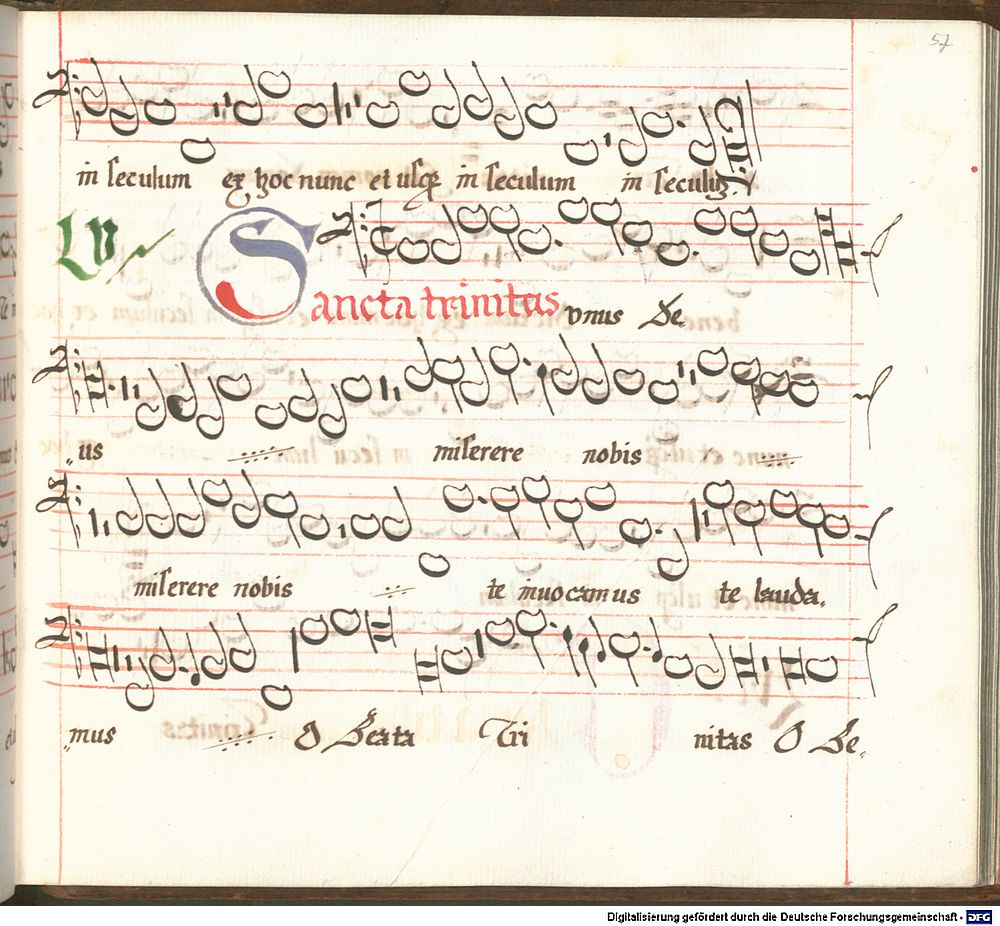 57
in seculum ex hoc nunc et usqz in seculum in seculuz
LV
Sancta trinitas vnus De,
„us miserere nobis
miserere nobis te inuocamus te lauda,
„mus O Beata Tri nitas O Be„
Digitalisierung gefördert durch die Deutsche Forschungsgemeinschaft - DFG